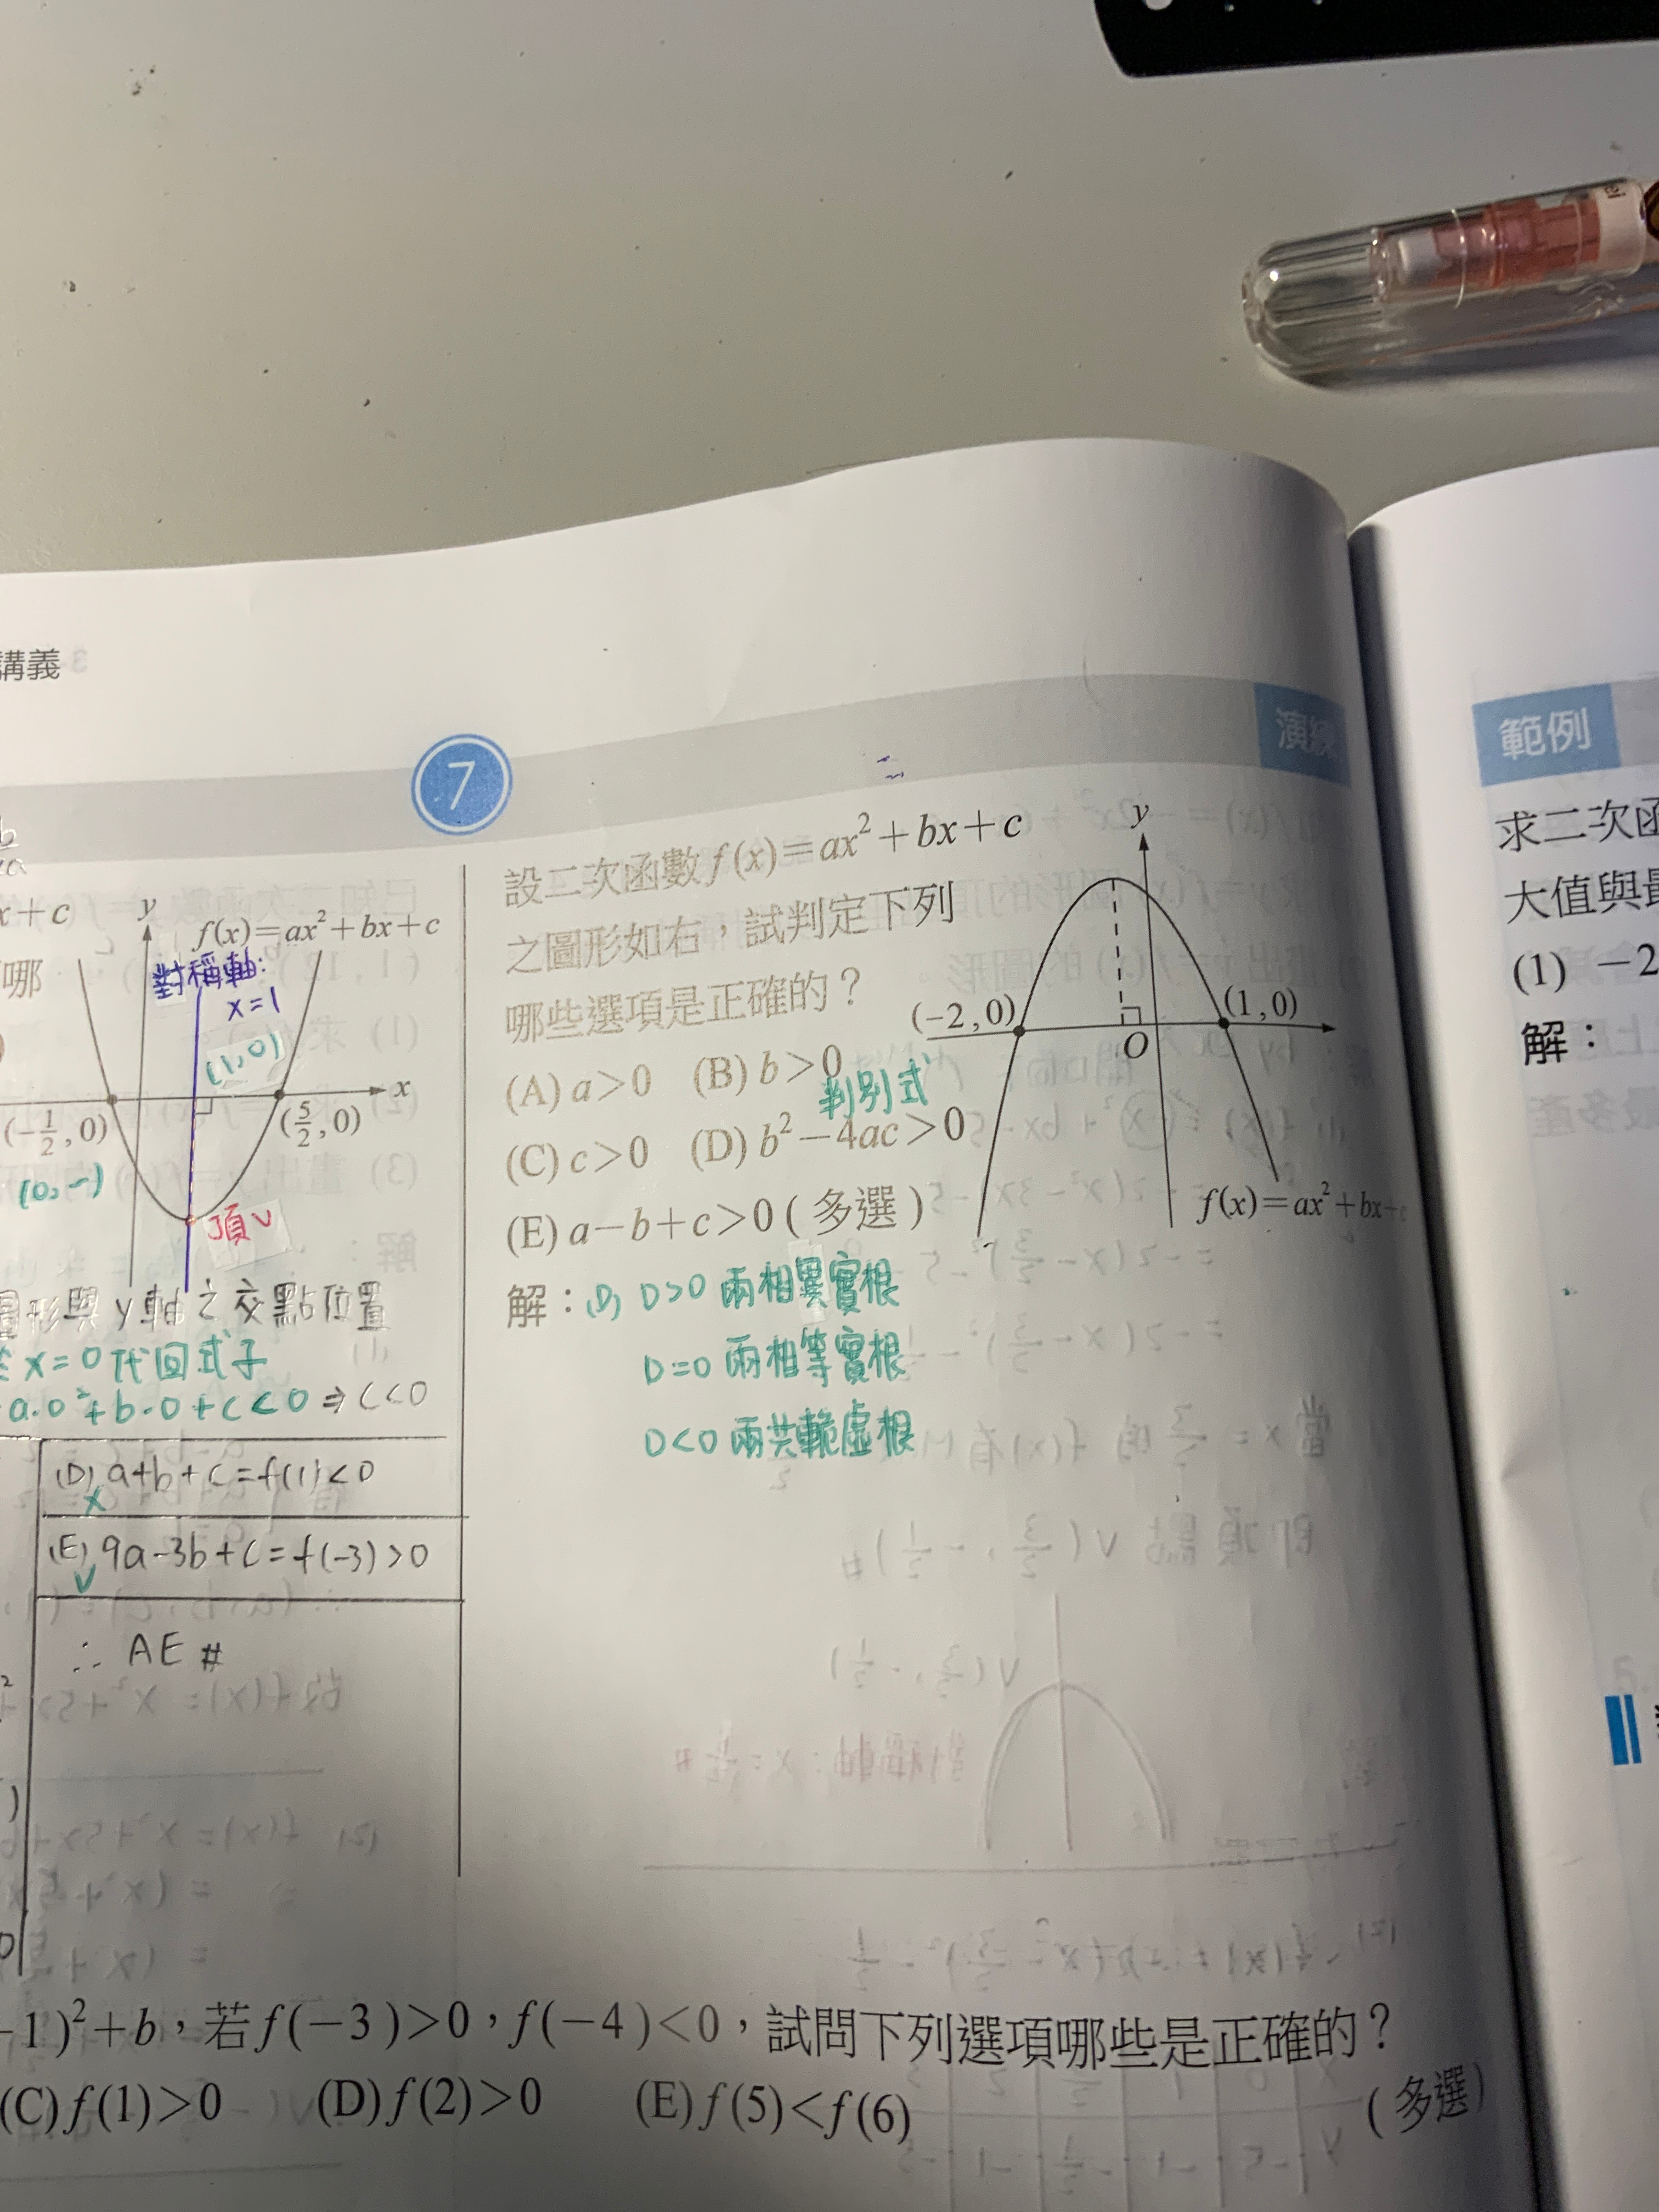 講義
7
演練
x+c
哪
y
f(x)=ax²+bx+c
對稱軸:
x=1
(1,0)
x
(-1/2,0)
(5/2,0)
(0,-)
頂V
圖形與y軸之交點位置
x=0代回式子
a·0²+b·0+c<0⇒c<0
(D) a+b+c=f(1)<0
x
(E) 9a-3b+c=f(-3)>0
v
∴ AE #
設二次函數f(x)=ax²+bx+c
之圖形如右,試判定下列
哪些選項是正確的?
(A) a>0 (B) b>0
判別式
(C) c>0 (D) b²-4ac>0
(E) a-b+c>0(多選)
y
(-2,0)
(1,0)
O
f(x)=ax²+bx+c
解:(D) D>0 兩相異實根
D=0 兩相等實根
D<0 兩共軛虛根
-1)²+b,若f(-3)>0,f(-4)<0,試問下列選項哪些是正確的?
(C) f(1)>0 (D) f(2)>0 (E) f(5)<f(6) (多選)
範例
求二次函
大值與最
(1) -2
解: